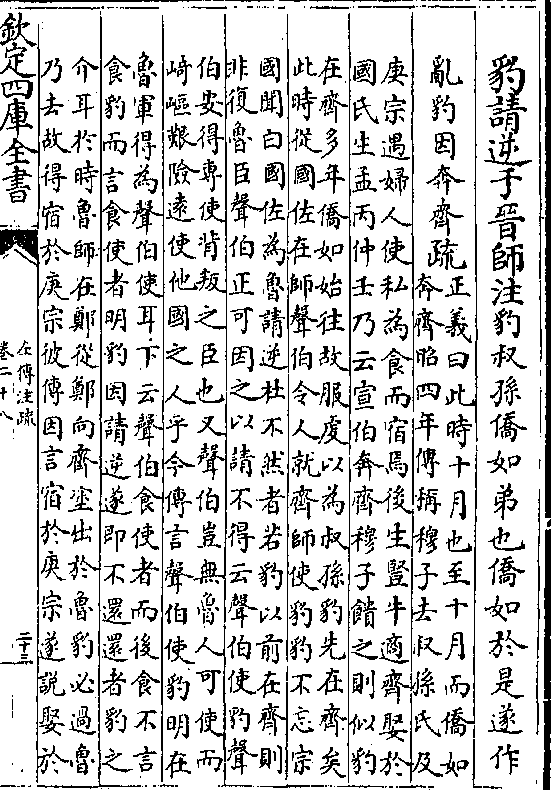 豹請逆于晉師注豹叔孫僑如弟也僑如於是遂作
亂豹因奔齊疏
正義曰此時十月也至十月而僑如
奔齊昭四年傳稱穆子去叔孫氏及
庚宗遇婦人使私為食而宿焉後生豎牛適齊娶於
國氏生孟丙仲壬乃云宣伯奔齊穆子饋之則似豹
在齊多年僑如始往故服虔以為叔孫豹先在齊矣
此時從國佐在師聲伯令人就齊師使豹豹不忘宗
國聞白國佐為魯請逆杜不然者若豹以前在齊則
非復魯臣聲伯正可因之以請不得云聲伯使豹聲
伯安得專使背叛之臣也又聲伯豈無魯人可使而
崎嶇艱險遠使他國之人乎今傳言聲伯使豹明在
魯軍得為聲伯使耳下云聲伯食使者而後食不言
食豹而言食使者明豹因請逆遂即不還還者豹之
介耳於時魯師在鄭從鄭向齊塗出於魯豹必過魯
乃去故得宿於庚宗彼傳因言宿於庚宗遂說娶於
欽定四庫全書
左傳注疏
卷二十八
二十三